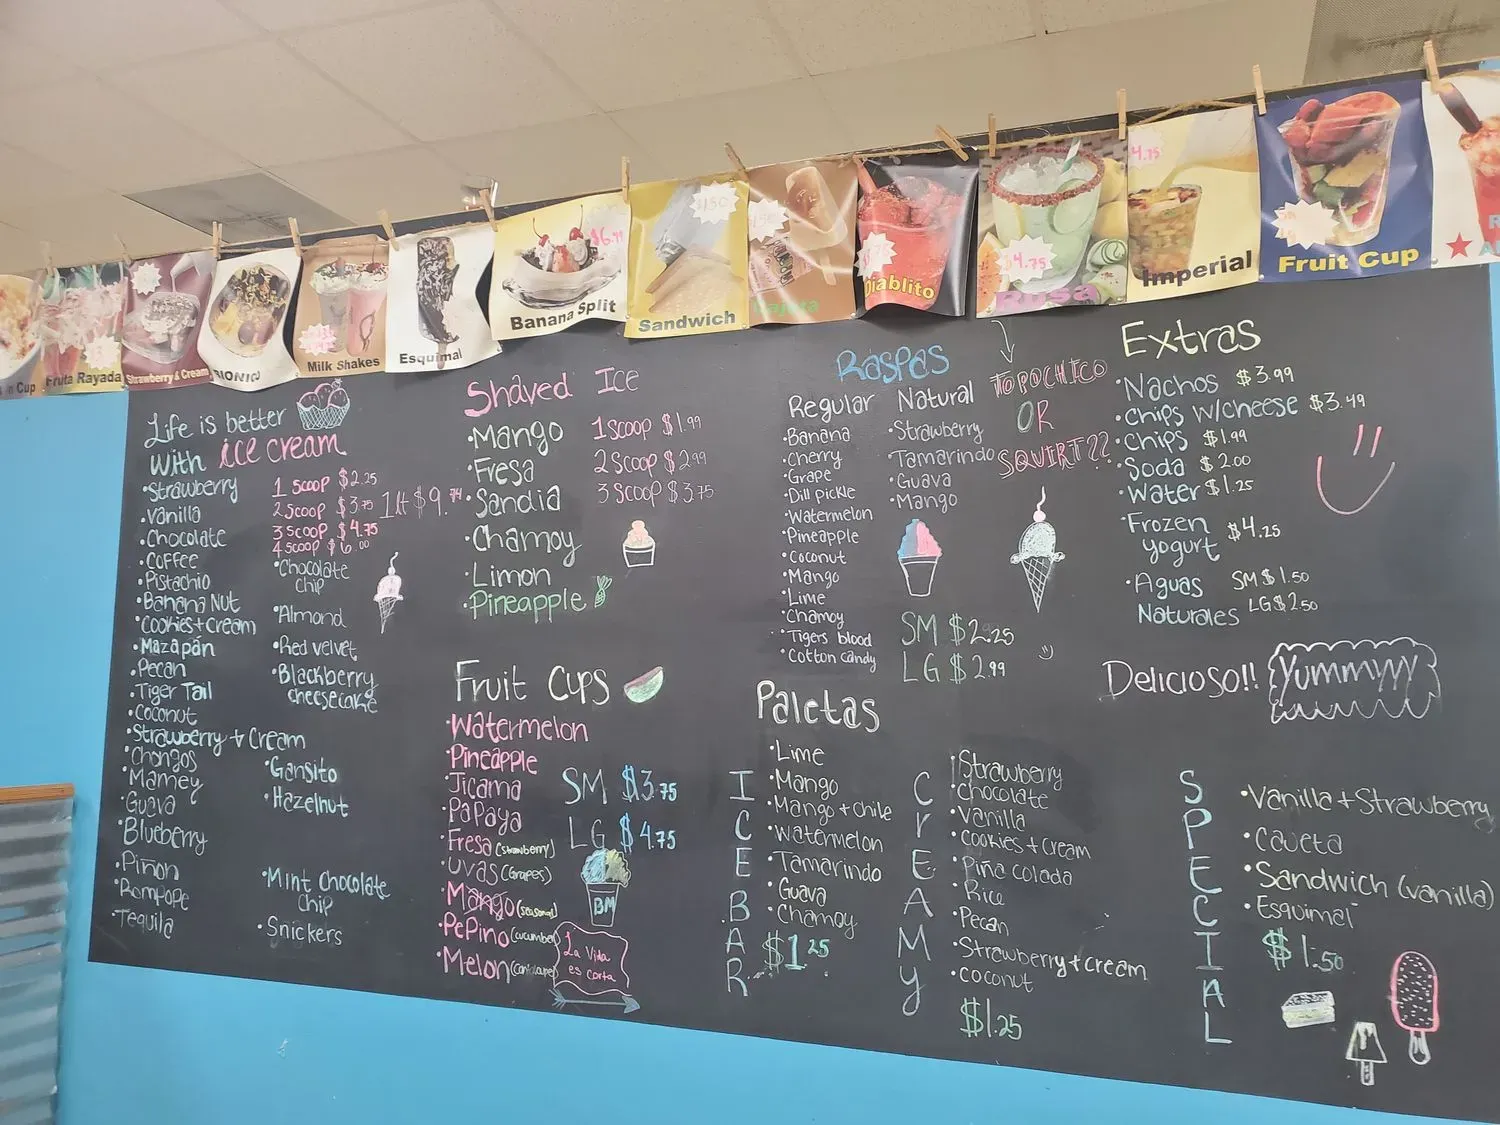 Fruta Rayada
Strawberry & Cream
Milk Shakes
Esquimal
Banana Split
$6.99
Sandwich
$1.50
Diablito
Rusa
$4.75
Imperial
4.75
Fruit Cup
Life is better
with ice cream
•Strawberry
•Vanilla
•Chocolate
•Coffee
•Pistachio
•Banana Nut
•Cookies+cream
•Mazapán
•Pecan
•Tiger Tail
•Coconut
•Strawberry + Cream
•Chongos
•Mamey
•Guava
•Blueberry
•Piñon
•Rompope
•Tequila
1 Scoop $2.25
2 Scoop $3.75
3 Scoop $4.75
4 Scoop $6.00
•Chocolate
chip
•Almond
•Red velvet
•Blackberry
cheesecake
•Gansito
•Hazelnut
•Mint Chocolate
chip
•Snickers
Shaved Ice
•Mango
•Fresa
•Sandia
•Chamoy
•Limon
•Pineapple
1 Scoop $1.99
2 Scoop $2.99
3 Scoop $3.75
Fruit Cups
•Watermelon
•Pineapple
•Jicama
•Papaya
•Fresa (strawberry)
•Uvas (Grapes)
•Mango (seasonal)
•Pepino (cucumber)
•Melon (cantaloupe)
SM $3.75
LG $4.75
BM
La Vida
es corta
Raspas
Regular
•Banana
•Cherry
•Grape
•Dill pickle
•Watermelon
•Pineapple
•Coconut
•Mango
•Lime
•Chamoy
•Tigers blood
•Cotton candy
Natural
•Strawberry
•Tamarindo
•Guava
•Mango
TOPOCHICO
OR
SQUIRT??
SM $2.25
LG $2.99
Paletas
ICE BAR
•Lime
•Mango
•Mango + chile
•Watermelon
•Tamarindo
•Guava
•Chamoy
$1.25
CrEAMy
•Strawberry
•Chocolate
•Vanilla
•Cookies + cream
•Piña colada
•Rice
•Pecan
•Strawberry + cream
•Coconut
$1.25
Extras
•Nachos $3.99
•Chips w/cheese $3.49
•Chips $1.99
•Soda $2.00
•Water $1.25
•Frozen
yogurt $4.25
•Aguas SM $1.50
Naturales LG $2.50
Delicioso!! Yummyy
SPECIAL
•Vanilla + Strawberry
•Cajeta
•Sandwich (vanilla)
•Esquimal
$1.50